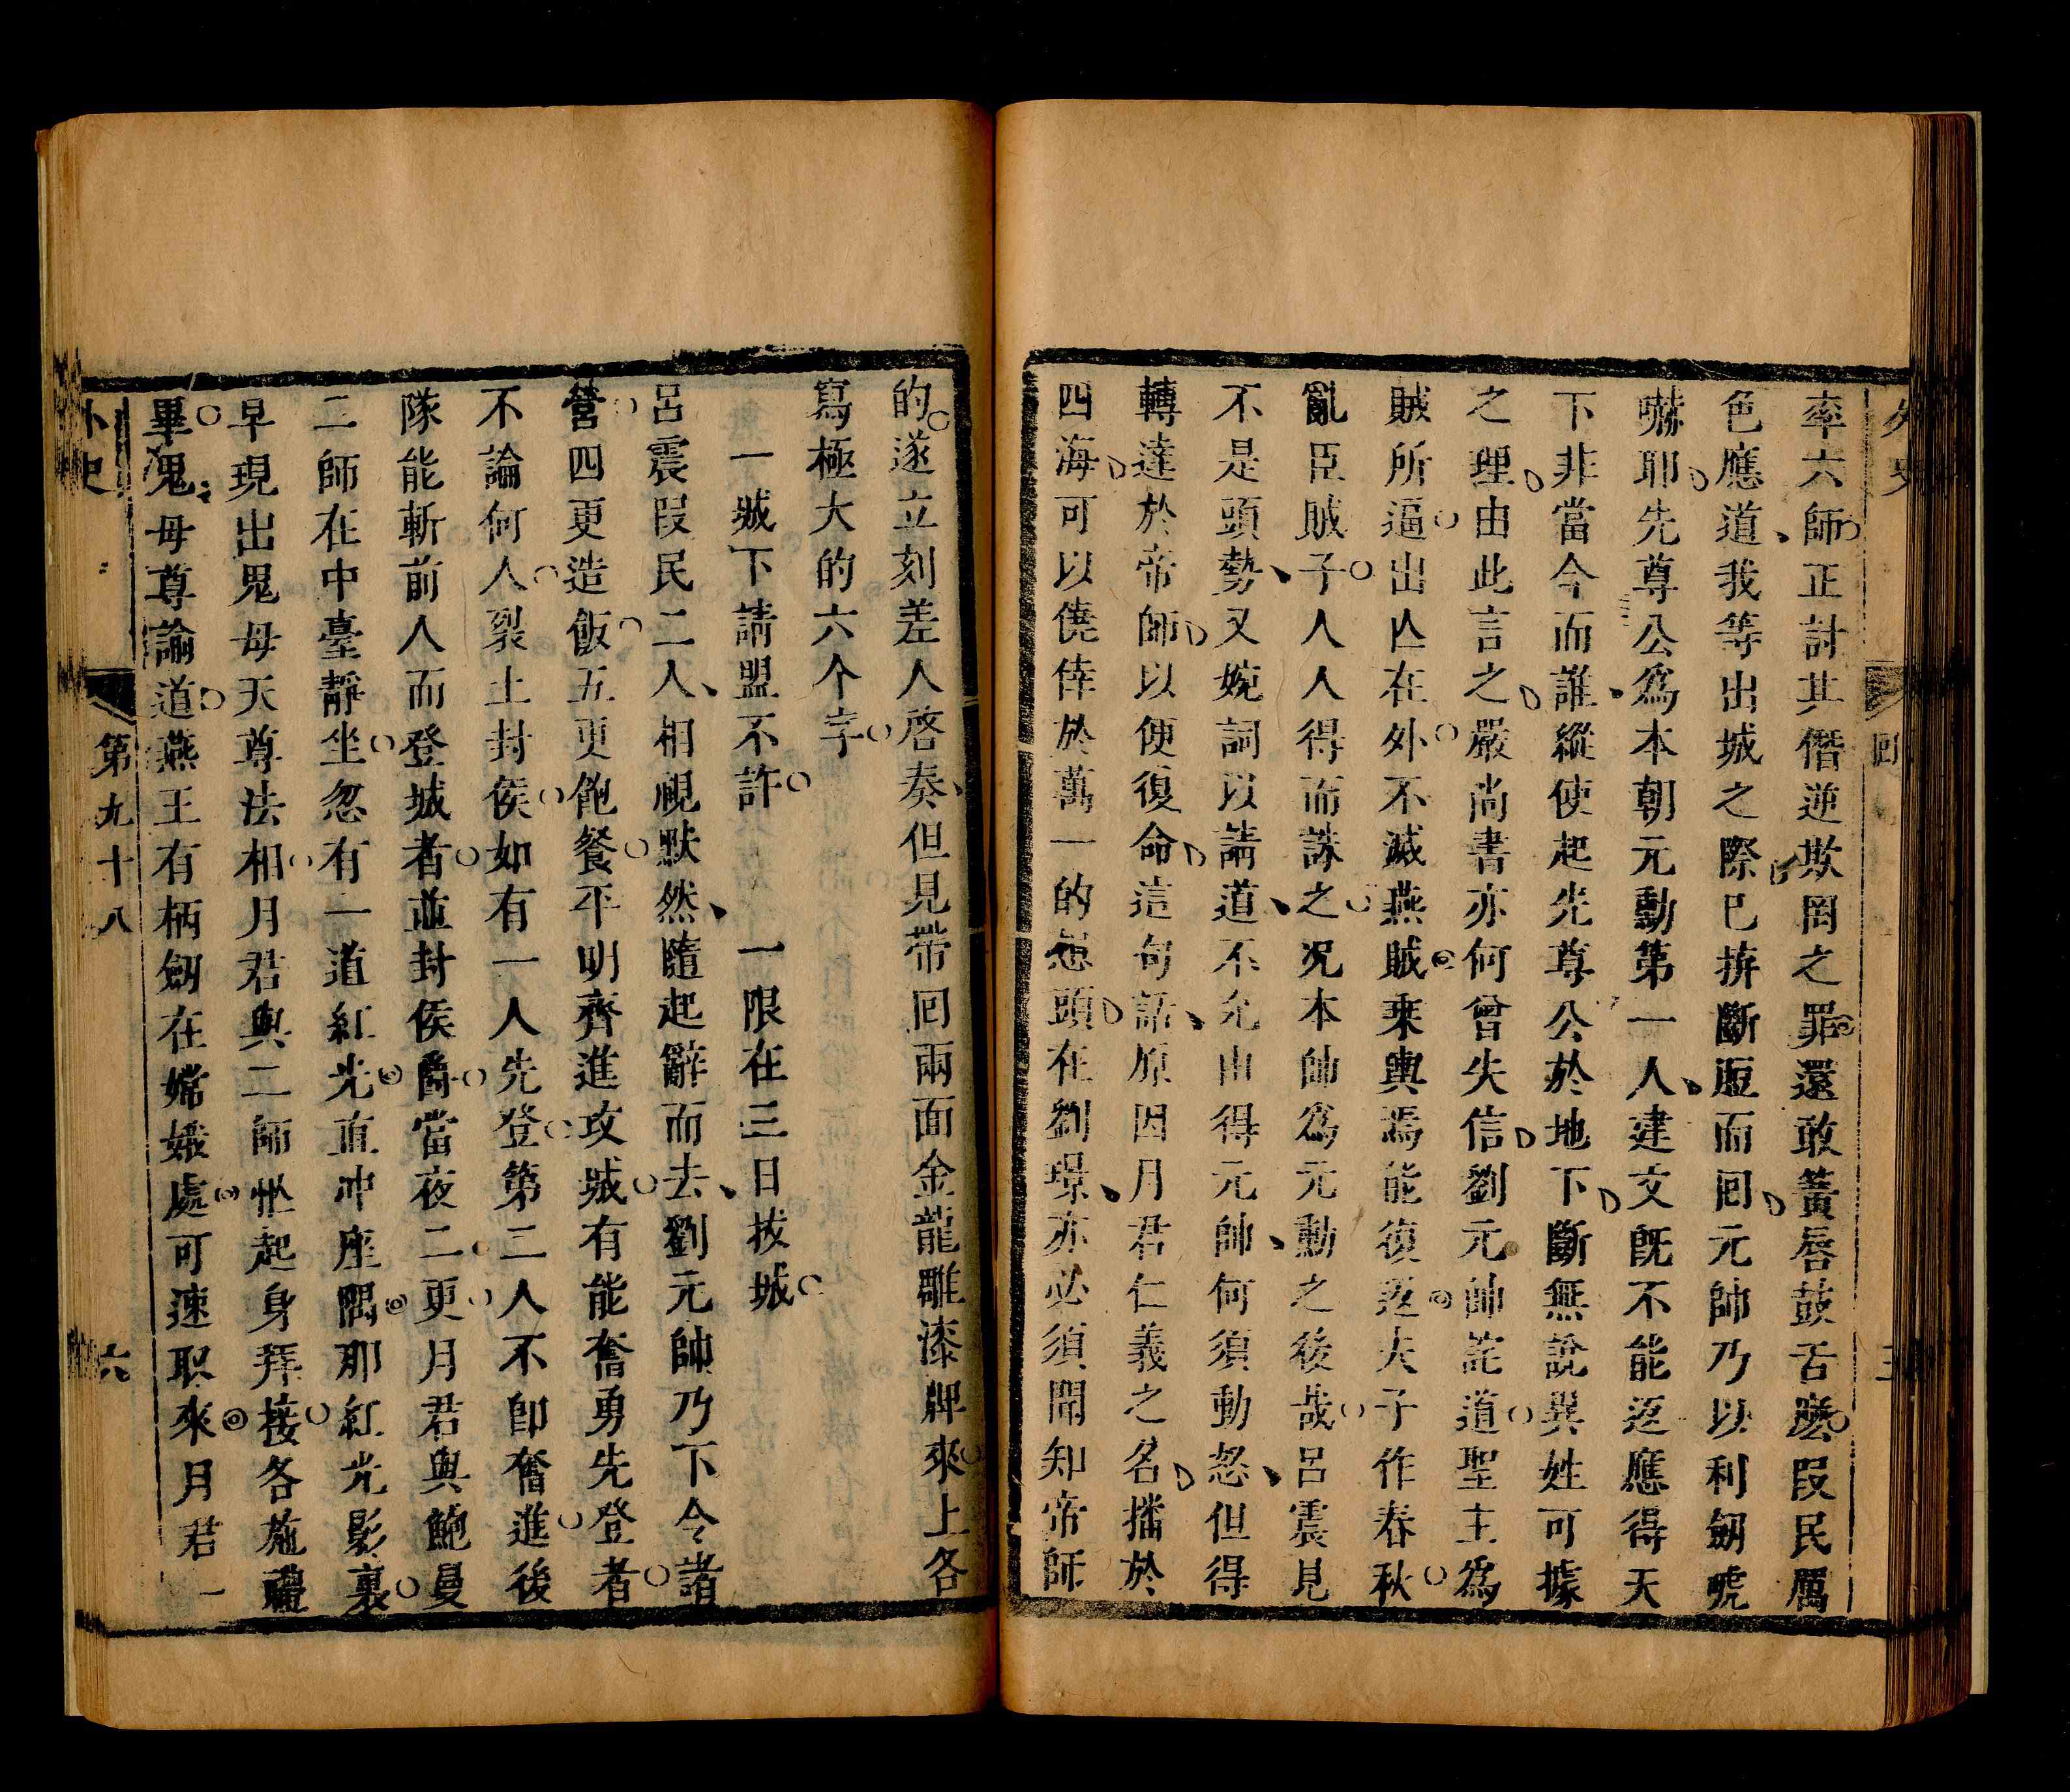 外史
回
率六師正討其僭逆欺罔之罪還敢簧唇鼓舌麽段民厲
色應道我等出城之際已拚斷頭而回元帥乃以利劔唬
嚇耶先尊公爲本朝元勳第一人建文旣不能返應得天
下非當今而誰縱使起先尊公於地下斷無說異姓可據
之理由此言之嚴尚書亦何曾失信劉元帥詫道聖主爲
賊所逼出亾在外不滅燕賊乘輿焉能復返夫子作春秋
亂臣賊子人人得而誅之况本帥爲元勳之後哉呂震見
不是頭勢又婉詞以請道不允由得元帥何須動怒但得
轉達於帝師以便復命這句話原因月君仁義之名播於
四海可以僥倖於萬一的念頭在劉璟亦必須聞知帝師
的遂立刻差人啓奏但見帶回兩面金龍雕漆牌來上各
寫極大的六个字
一城下請盟不許　一限在三日拔城
呂震段民二人相視默然隨起辭而去劉元帥乃下令諸
營四更造飯五更飽餐平明齊進攻城有能奮勇先登者
不論何人裂土封侯如有一人先登第二人不卽奮進後
隊能斬前人而登城者並封侯爵當夜二更月君與鮑曼
二師在中臺靜坐忽有一道紅光直冲座隅那紅光影裏
早現出鬼母天尊法相月君與二師忙起身拜接各施禮
畢鬼母尊諭道燕王有柄劔在嫦娥處可速取來月君一
外史
第九十八
六